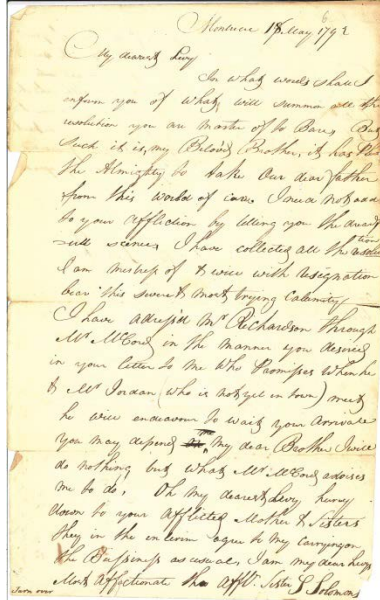 Montreal 18 May 1792
My dearest Levy
In what words shall I
inform you of what will summon all the
resolution you are master of to Bare, But
Such it is, my Beloved Brother, it has
the Almighty to take Our dear father
from this world of care I will not add
to your affliction by telling you the
scenes I have collected all the
I am mistress of & will with resignation
bear this severe & most trying Calamity
I have adressd Mr Richardson through
Mr McCord in the manner you desired
in your letter to me Who Promises when he
& Mr Jordan (who is not yet in town) meet
he will endeavour To wait your arrivale
You may depend my dear Brother I will
do nothing but what Mr McCord advises
me to do, Oh my dearest Levy hurry
down to your Afflicted Mother & Sisters
they in the interim agree to my carrying on
the Bussiness as usual, I am my dear
Most Affectionate & afft. Sister S Solomons
Turn over